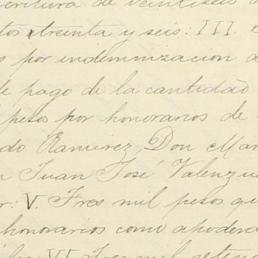 critura de veintiseis d
tos treinta y seis: III. e
s por indemnizacion a
le pago de la cantidad
pesos por honorarios de
do Ramirez, Don Mar
n Juan José Valenzue
r. V. Tres mil pesos qu
honorarios como apodera
VI. Tres mil